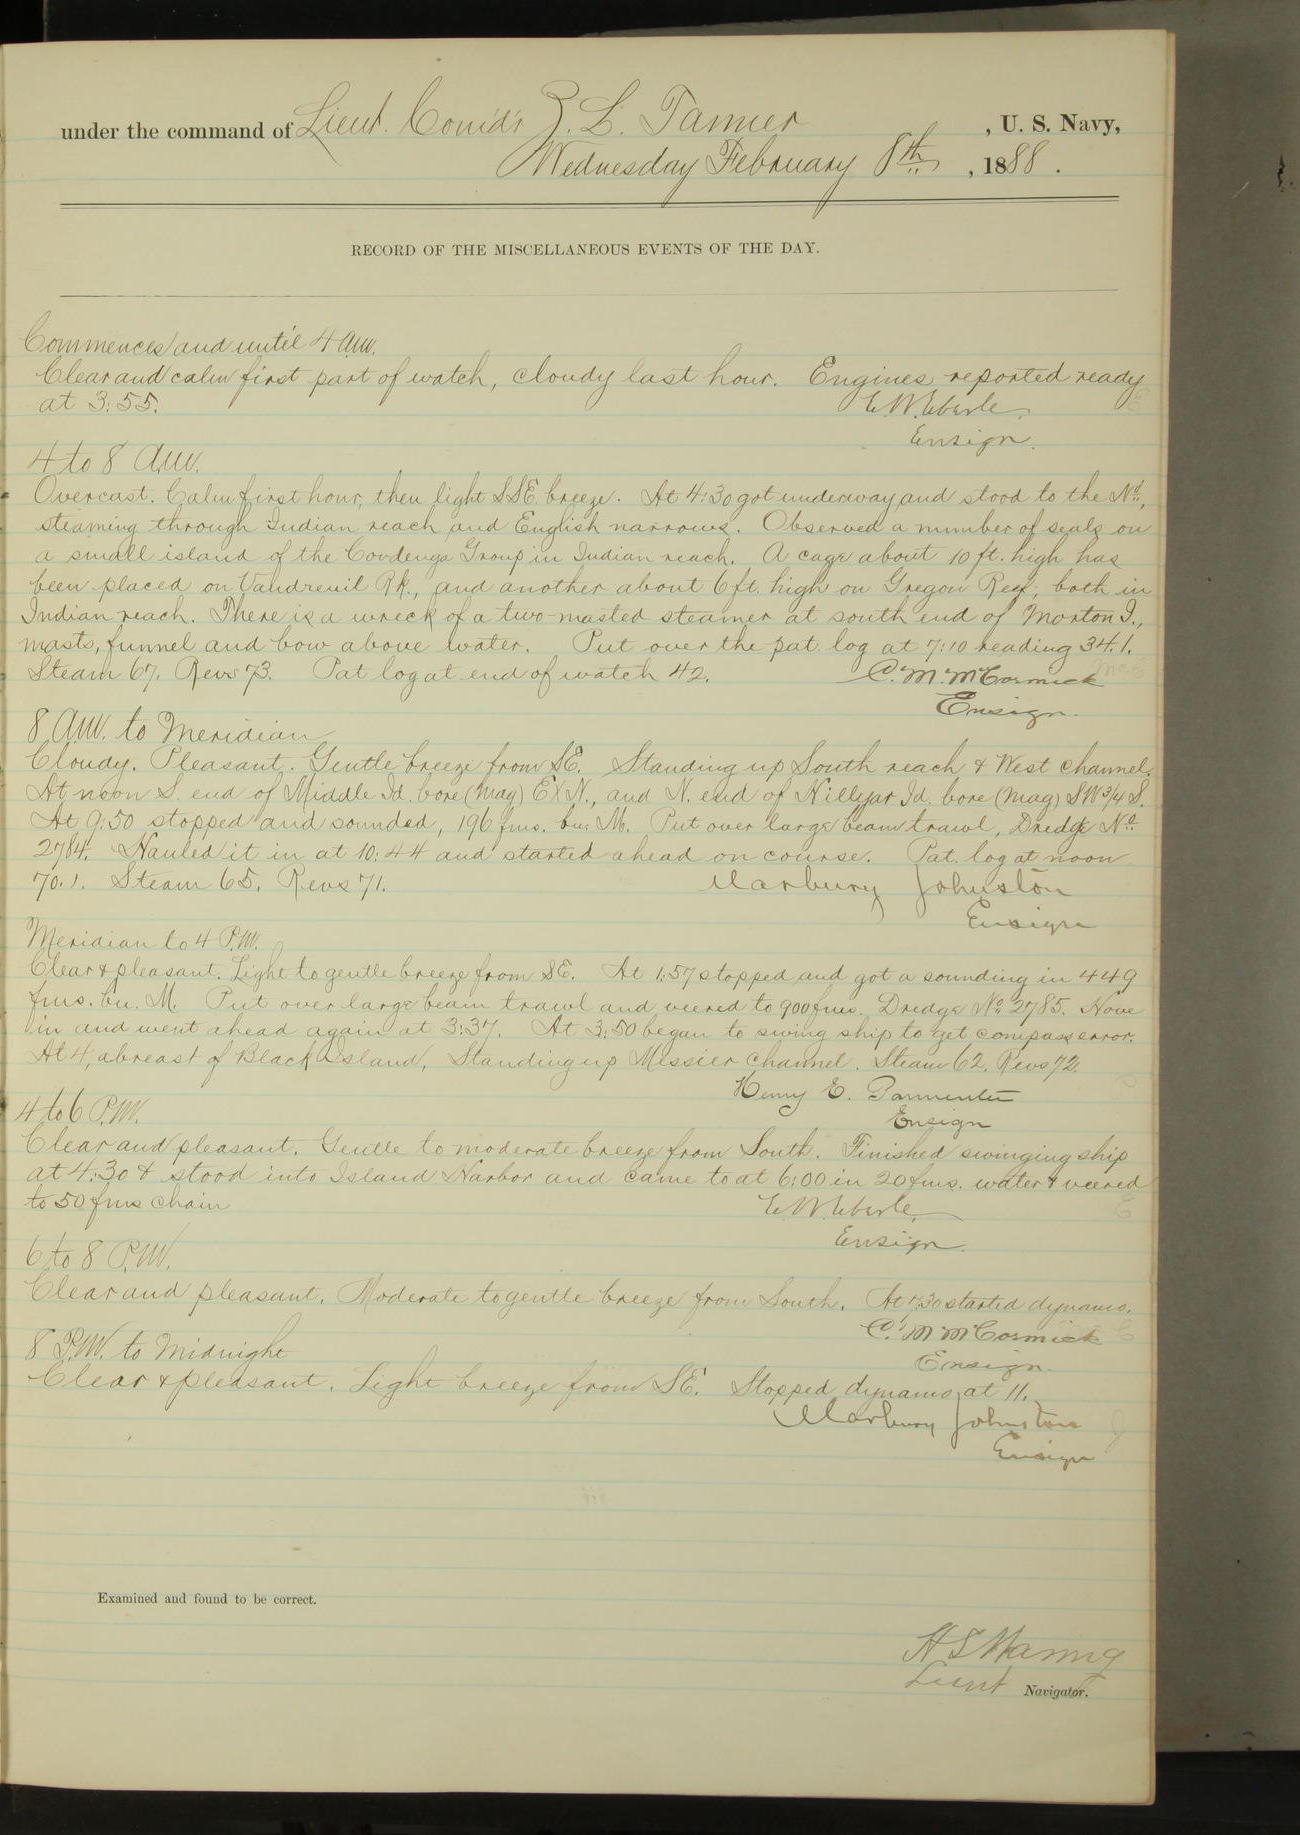 under the command of Lieut. Comd'r Z. L. Tanner, U. S. Navy,
Wednesday February 8th, 1888.
RECORD OF THE MISCELLANEOUS EVENTS OF THE DAY.
Commences and until 4 a.m.
Clear and calm first part of watch, cloudy last hour. Engines reported ready
at 3:55. E. W. Eberle
Ensign.
4 to 8 A.M.
Overcast. Calm first hour, then light SSE. breeze. At 4:30 got underway and stood to the Nd.,
steaming through Indian reach and English narrows. Observed a number of seals on
a small island of the Covdenga Group in Indian reach. A cage about 10 ft. high has
been placed on Vaudreuil Rk., and another about 6 ft. high on Gregon Reef, both in
Indian reach. There is a wreck of a two-masted steamer at south end of Morton I.,
masts, funnel and bow above water. Put over the pat. log at 7:10 reading 34.1.
Steam 67. Revs 73. Pat log at end of watch 42. C. M. McCormick
Ensign.
8 A.M. to Meridian
Cloudy. Pleasant. Gentle breeze from SE. Standing up South reach & West channel.
At noon S. end of Middle Id. bore (mag) ExN., and N. end of Millyar Id. bore (mag) SW 3/4 S.
At 9:50 stopped and sounded, 196 fms. bu. M. Put over large beam trawl, Dredge No.
2784. Hauled it in at 10:44 and started ahead on course. Pat. log at noon
70.1. Steam 65. Revs 71. Marbury Johnston
Ensign
Meridian to 4 P.M.
Clear & pleasant. Light to gentle breeze from SE. At 1:57 stopped and got a sounding in 449
fms. bu. M. Put over large beam trawl and veered to 900 fms. Dredge No. 2785. Hove
in and went ahead again at 3:37. At 3:50 began to swing ship to get compass error.
At 4, abreast of Black Island, Standing up Messier Channel. Steam 62. Revs 72.
Henry E. Parmenter
Ensign
4 to 6 P.M.
Clear and pleasant. Gentle to moderate breeze from South. Finished swinging ship
at 4:30 & stood into Island Harbor and came to at 6:00 in 20 fms. water & veered
to 50 fms chain E. W. Eberle,
Ensign.
6 to 8 P.M.
Clear and pleasant. Moderate to gentle breeze from South. At 7:30 started dynamo.
C. M. McCormick
Ensign.
8 P.M. to Midnight
Clear & pleasant. Light breeze from SE. Stopped dynamo at 11.
Marbury Johnston
Ensign
Examined and found to be correct.
H S Waring
Lieut Navigator.